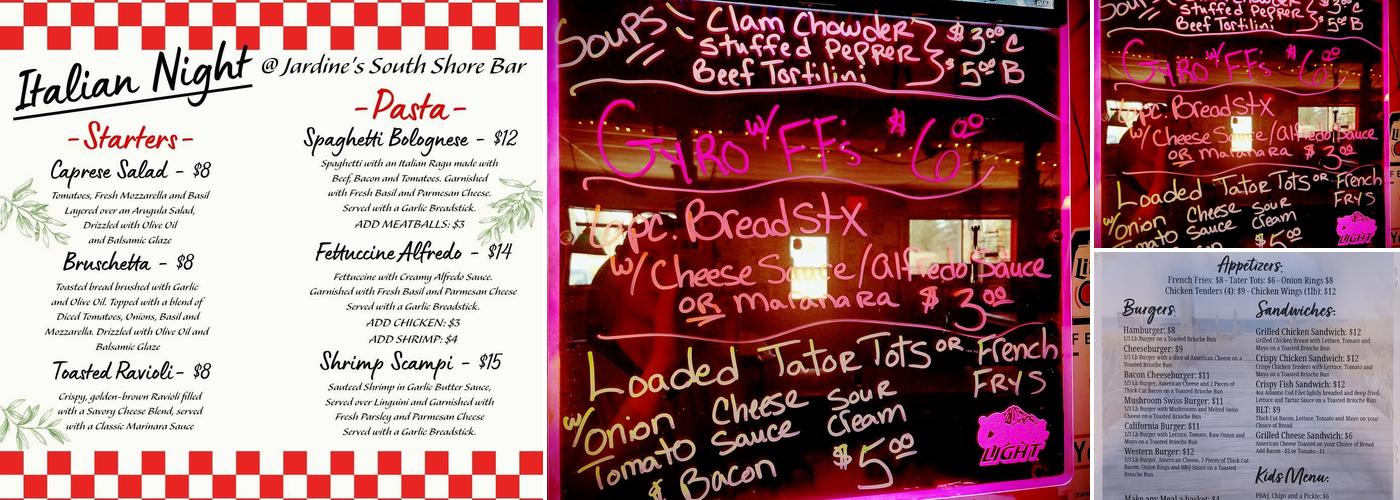 Italian Night @ Jardine's South Shore Bar
-Starters-
Caprese Salad - $8
Tomatoes, Fresh Mozzarella and Basil
Layered over an Arugula Salad,
Drizzled with Olive Oil
and Balsamic Glaze
Bruschetta - $8
Toasted bread brushed with Garlic
and Olive Oil. Topped with a blend of
Diced Tomatoes, Onions, Basil and
Mozzarella. Drizzled with Olive Oil and
Balsamic Glaze
Toasted Ravioli - $8
Crispy, golden-brown Ravioli filled
with a Savory Cheese Blend, served
with a Classic Marinara Sauce
-Pasta-
Spaghetti Bolognese - $12
Spaghetti with an Italian Ragu made with
Beef, Bacon and Tomatoes. Garnished
with Fresh Basil and Parmesan Cheese.
Served with a Garlic Breadstick.
ADD MEATBALLS: $3
Fettuccine Alfredo - $14
Fettuccine with Creamy Alfredo Sauce.
Garnished with Fresh Basil and Parmesan Cheese
Served with a Garlic Breadstick.
ADD CHICKEN: $3
ADD SHRIMP: $4
Shrimp Scampi - $15
Sauteed Shrimp in Garlic Butter Sauce,
Served over Linguini and Garnished with
Fresh Parsley and Parmesan Cheese
Served with a Garlic Breadstick.
Soups Clam Chowder $3.00 C
Stuffed Pepper
Beef Tortilini $5.00 B
Gyro w/ FF's $6.00
pc. Bread Stx
w/ Cheese Sauce/Alfredo Sauce
OR Maranara $3.00
Loaded Tator Tots OR French Frys
w/ Onion Cheese Sour Cream
Tomato Sauce
& Bacon $5.00
LIGHT
Soups Stuffed Pepper $3.00 C
Beef Tortilini $5.00 B
Gyro w/ FF's $6.00
pc. Bread Stx
w/ Cheese Sauce/Alfredo Sauce
OR Maranara $3.00
Loaded Tator Tots OR French Frys
w/ Onion Cheese Sour Cream
Tomato Sauce $5.00
LIGHT
Appetizers:
French Fries: $8 - Tater Tots: $6 - Onion Rings $8
Chicken Tenders (4): $9 - Chicken Wings (1lb): $12
Burgers:
Hamburger: $8
1/3 Lb Burger on a Toasted Brioche Bun
Cheeseburger: $9
1/3 Lb Burger with a slice of American Cheese on a
Toasted Brioche Bun
Bacon Cheeseburger: $11
1/3 Lb Burger, American Cheese and 2 Pieces of
Thick Cut Bacon on a Toasted Brioche Bun
Mushroom Swiss Burger: $11
1/3 Lb Burger with Mushrooms and Melted Swiss
Cheese on a Toasted Brioche Bun
California Burger: $11
1/3 Lb Burger with Lettuce, Tomato, Raw Onion and
Mayo on a Toasted Brioche Bun
Western Burger: $12
1/3 Lb Burger, American Cheese, 2 Pieces of Thick Cut
Bacon, Onion Rings and BBQ Sauce on a Toasted
Brioche Bun
Make any Meal a basket: $4
Sandwiches:
Grilled Chicken Sandwich: $12
Grilled Chicken Breast with Lettuce, Tomato and
Mayo on a Toasted Brioche Bun
Crispy Chicken Sandwich: $12
Crispy Chicken Tenders with Lettuce, Tomato and
Mayo on a Toasted Brioche Bun
Crispy Fish Sandwich: $12
4oz Atlantic Cod Filet lightly breaded and deep fried.
Lettuce and Tartar Sauce on a Toasted Brioche Bun
BLT: $9
Thick Cut Bacon, Lettuce, Tomato and Mayo on your
Choice of Bread
Grilled Cheese Sandwich: $6
American Cheese Toasted on your Choice of Bread
Add Bacon - $2 or Tomato - $1
Kids Menu:
PB&J, Chips and a Pickle: $5